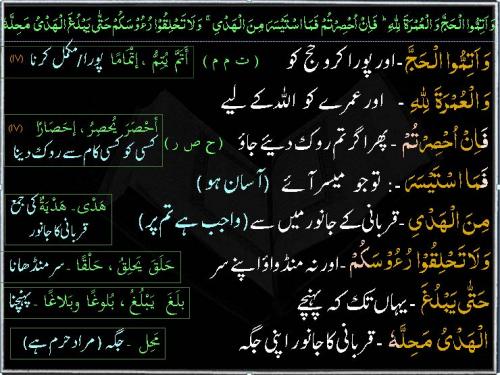 وَاَتِمُّوا الْحَجَّ وَالْعُمْرَةَ لِلّٰهِ ؕ فَاِنْ اُحْصِرْتُمْ فَمَا اسْتَيْسَرَ مِنَ الْهَدْىِ ۚ وَلَا تَحْلِقُوْا رُءُوْسَكُمْ حَتّٰى يَبْلُغَ الْهَدْىُ مَحِلَّهٗ
وَاَتِمُّوا الْحَجَّ -اور پورا کرو حج کو (ت م م) أَتَمَّ يُتِمُّ ، إِتْمَامًا پورا/مکمل کرنا (IV)
وَالْعُمْرَةَ لِلّٰهِ - اور عمرے کو اللہ کے لیے
فَاِنْ اُحْصِرْتُمْ -پھر اگر تم روک دیئے جاؤ (ح ص ر) أَحْصَرَ يُحْصِرُ ، إِحْصَارًا (IV) کسی کو کسی کام سے روک دینا
فَمَا اسْتَيْسَرَ -: تو جو میسر آئے (آسان ہو)
مِنَ الْهَدْىِ -قربانی کے جانور میں سے (واجب ہے تم پر) هَدْىٌ - هَدْيَةٌ کی جمع قربانی کا جانور
وَلَا تَحْلِقُوْا رُءُوْسَكُمْ -اور نہ منڈواؤ اپنے سر حَلَقَ يَحْلِقُ ، حَلْقًا - سر منڈھانا
حَتّٰى يَبْلُغَ -یہاں تک کہ پہنچے بَلَغَ يَبْلُغُ ، بُلُوغًا وَبَلَاغًا - پہنچنا
الْهَدْىُ مَحِلَّهٗ -قربانی کا جانور اپنی جگہ مَحِل - جگہ (مراد حرم ہے)